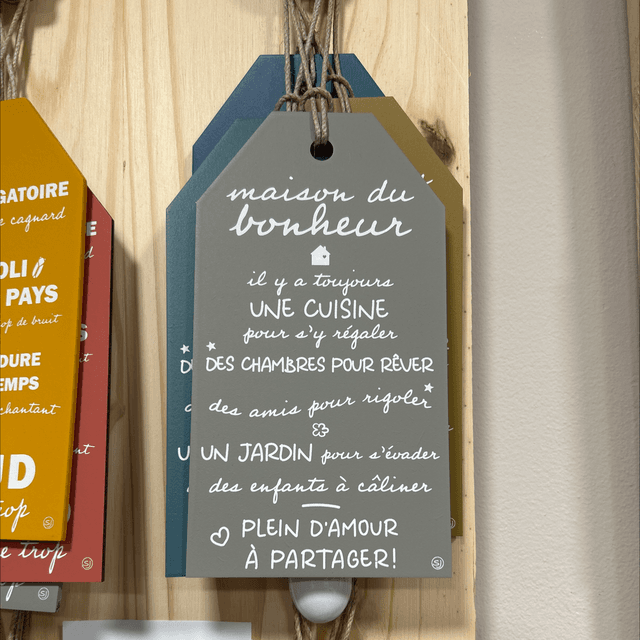 maison du
bonheur
il y a toujours
UNE CUISINE
pour s'y régaler
DES CHAMBRES POUR RÊVER
des amis pour rigoler
UN JARDIN pour s'évader
des enfants à câliner
PLEIN D'AMOUR
À PARTAGER!
GATOIRE
cagnard
OLI
PAYS
op de bruit
DURE
EMPS
chantant
UD
top
e trop